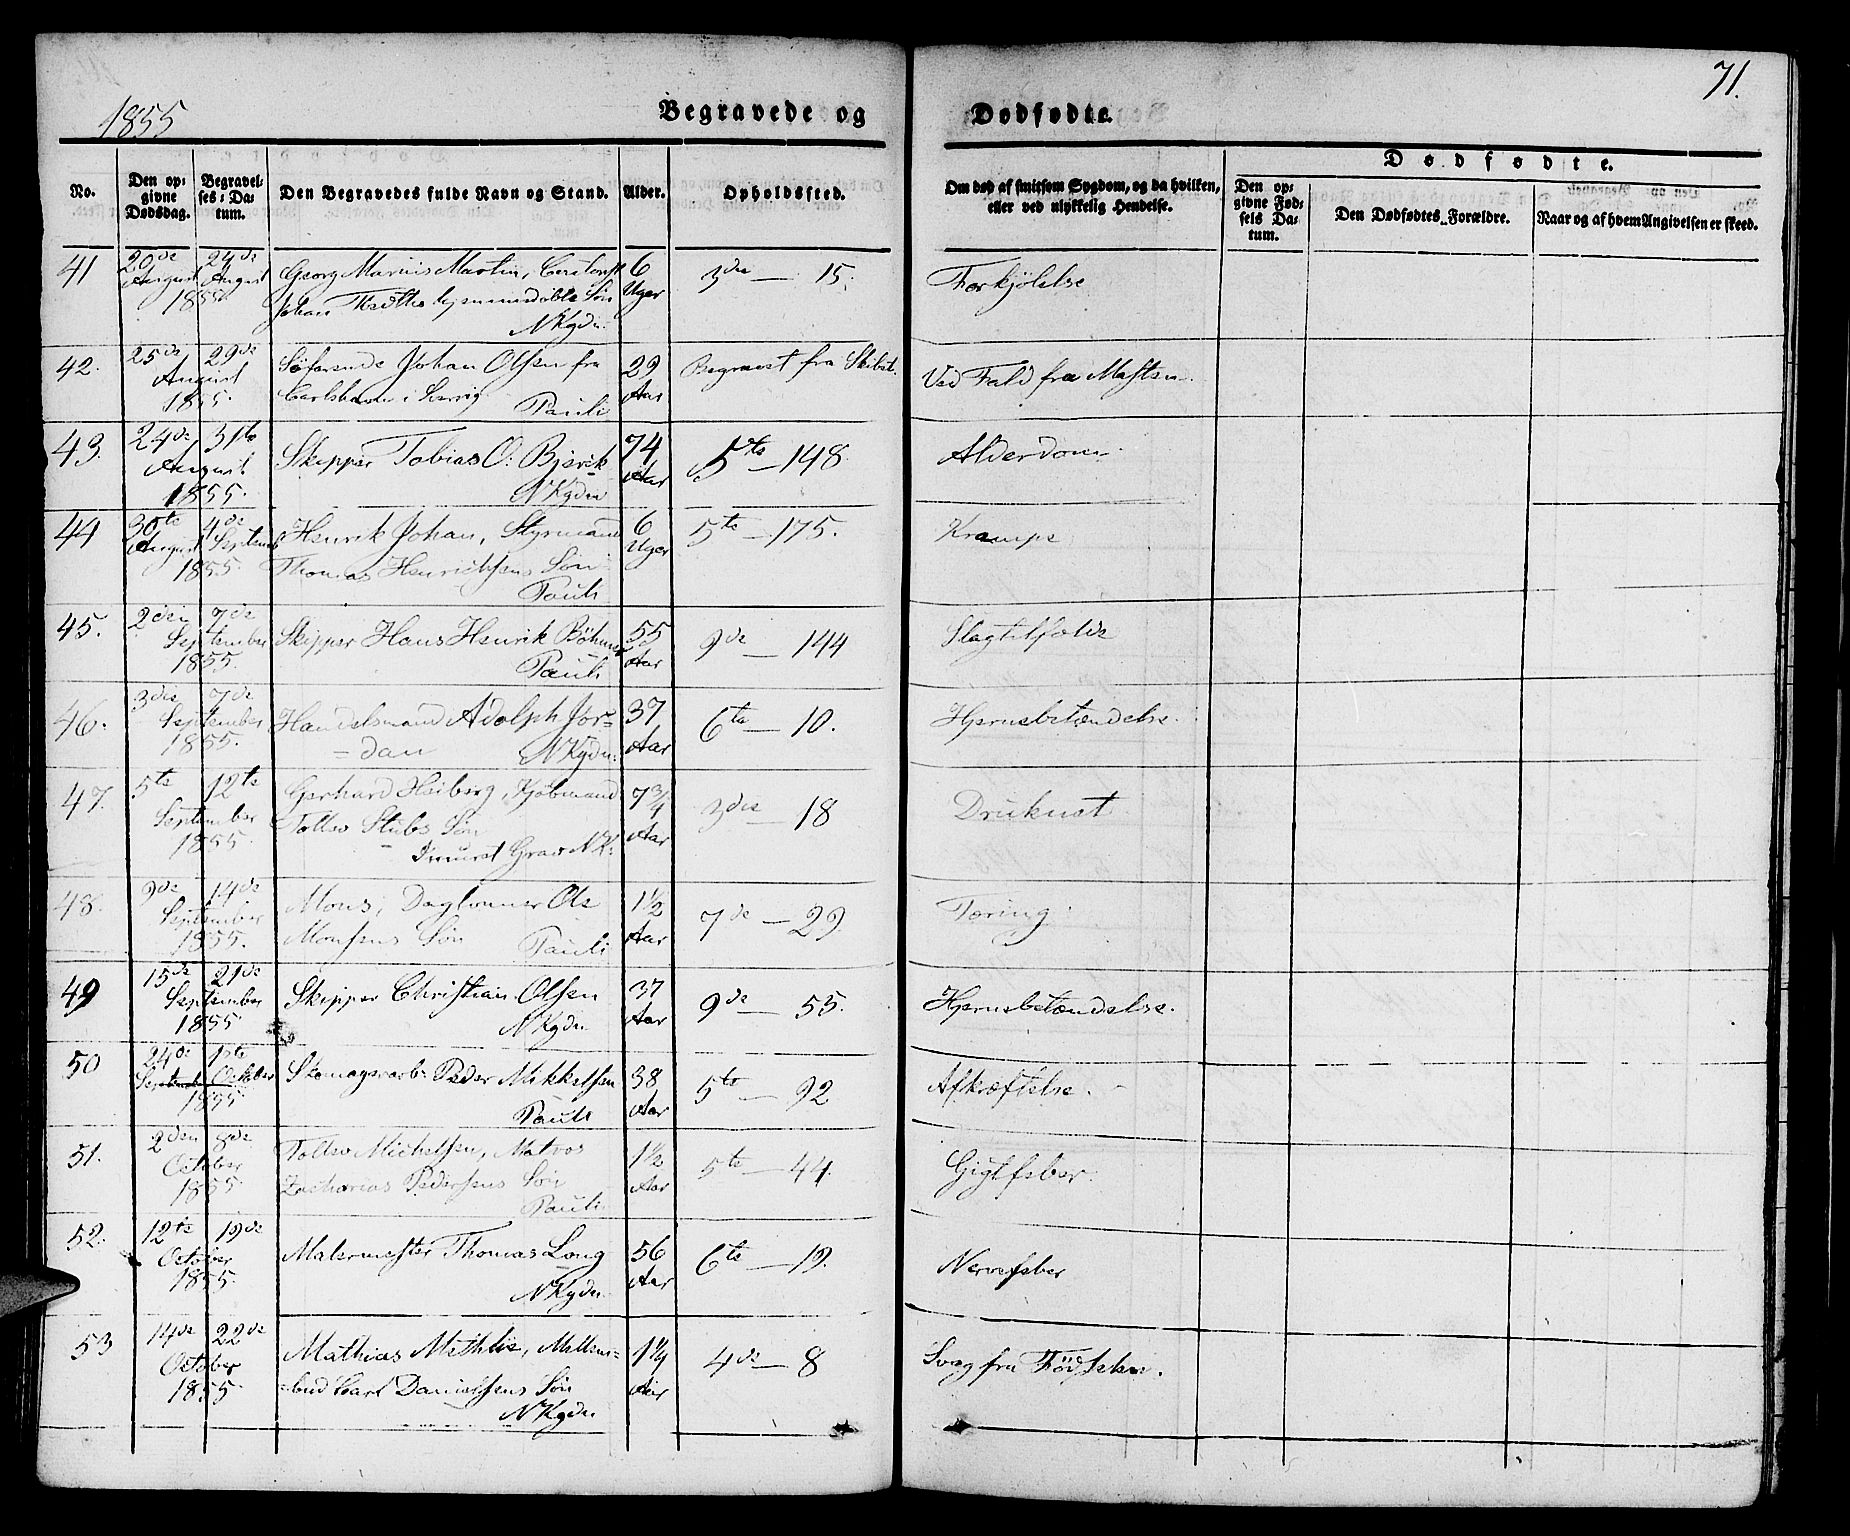 71.
1855
Begravede og Dødfødte.
No.
Den op-
givne
Dødsdag.
Begravel-
ses-Da-
tum.
Den Begravedes fulde Navn og Stand.
Alder.
Opholdssted.
Om død af smitsom Sygdom, og da hvilken,
eller ved ulykkelig Hendelse.
Dødfødte.
Den op-
givne Fød-
sels Da-
tum.
Den Dødfødtes Forældre.
Naar og af hvem Angivelsen er skeed.
41 20de 24de Georg Marius Martin, 6 3die — 15. Forkjølelse
August August Johan Søn Uger
1855 NKgdn.
42. 25de 29de Søfarende Johan Olsen fra 29 Begravet fra Skibet. Ved Fald fra Masten
August Carlshavn i Aar
1855. Pauli
43. 24de 31te Skipper Tobias O: Bjervik 74 5te — 148 Alderdom
August NKgdn Aar
1855.
44 30te 4de Henrik Johan, Styrmand 6 5te — 175. Krampe
August Septemb Thomas Henrichsens Søn Uger
1855 Pauli
45. 2den 7de Skipper Hans Henrik Böhmer 55 9de — 144 Slagtilfælde
September Pauli Aar
1855.
46. 3die 7de Handelsmand Adolph Jor= 37 6te — 10. Hjernebetændelse.
September =dan NKgdn: Aar
1855.
47. 5te 12te Gerhard Heiberg, Kjøbmand 7 3/4 3die — 18 Druknet
September Tollev Stubs Søn Aar
1855. Grav NK:
48. 9de 14de Mons, Daglønner Ole 1 1/2 7de — 29. Tæring
September Monsens Søn Pauli Aar
1855.
49 15de 21de Skipper Christian Olsen 37 9de — 55. Hjernebetændelse.
September NKgdn Aar
1855
50 24de 1ste Skomagerarb: Peder Mikkelsen 38 5te — 92 Afkræftelse.
September October Pauli Aar
1855
51. 2den 8de Tollev Michelsen, Matros 1 1/2 5te — 44. Gigtfeber
October Zacharias Pedersens Søn Aar
1855 Pauli
52. 12te 19de Malermester Thomas Long 56 6te — 19. Nervefeber
October NKgdn Aar
1855.
53 14de 22de Mathias Mathiæ, 1 1/4 4de — 8 Svag fra Födselen.
October =bud Carl Danielsens Søn Aar
1855 NKgdn